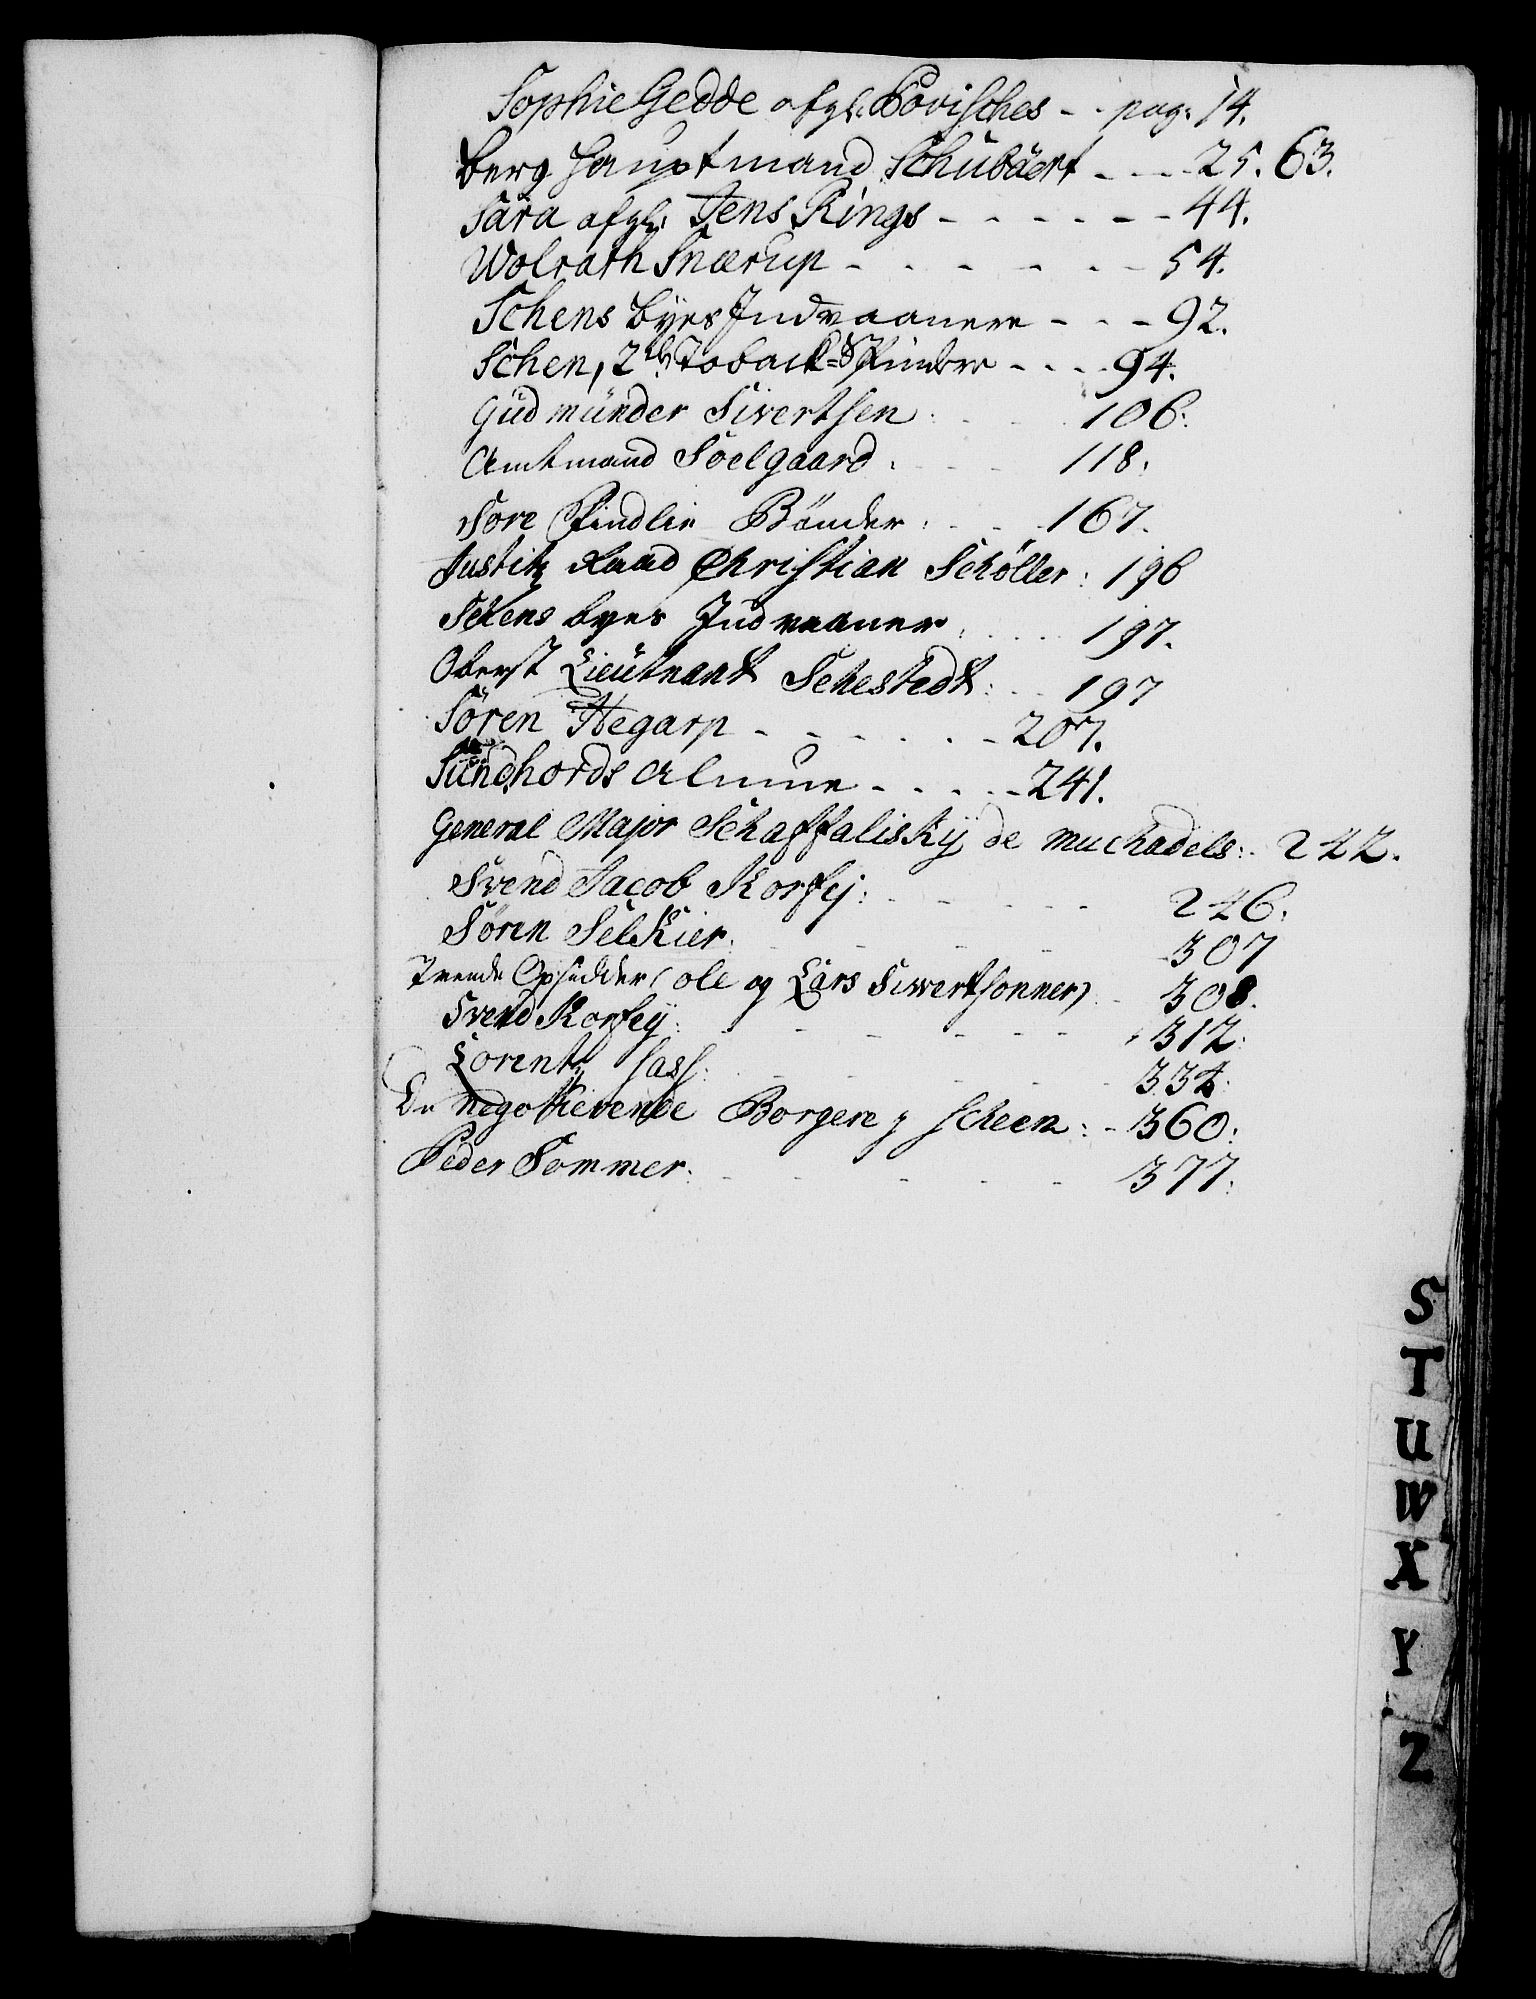 Sophie Gedde afgl. Povisches - - pag. 14.
Berg Hauptmand Schubäert - - - 25. 63.
Sara afgl. Jens Rings - - - - - - 44.
Wolrath Snærup - - - - - - 54.
Schens Byes Indvaanere - - - 92.
Schen, 2de Toback-Spindere - - - - 94.
Gudmunder Sivertsen : - - 106:
Amtmand Söelgaard . - - - 118.
Sore Findlie Bönder : - - 167.
Justitz Raad Christian Schöller : 196
Schens byes Indvaaner . . . . 197.
Oberst Lieutnant Sehestedt : - - 197
Sören Hegarp - - - - - - - 207.
Sundhords Almue - - - - - 241.
General Major Schaffalisky de muckadels : - 242.
Svend Jacob Korfej : - - - - - 246.
Sören Selkier . - - - - 307
Tvende Opsidder (ole og Lars Siwertsønner) - 308.
Svend Korfey : - - - - - 312:
Lorentz Sass : - - - - 334:
De negotierende Borgere j Scheen : - 360:
Peder Sommer : - - - - - 377:
S
T
U
W
X
Y
Z